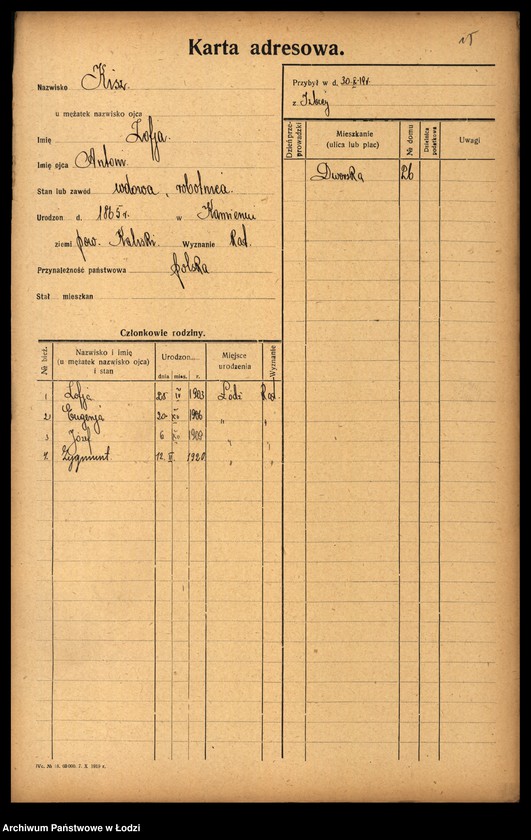 15
Karta adresowa.
Nazwisko Kisz
u mężatek nazwisko ojca
Imię Zofja
Imię ojca Antoni
Stan lub zawód wdowa, robotnica
Urodzon d. 1865 r. w Kamieniu
ziemi pow. Kaliski Wyznanie Kat.
Przynależność państwowa polska
Stał mieszkan
Członkowie rodziny.
№ bież. Nazwisko i imię (u mężatek nazwisko ojca) i stan Urodzon dnia mies. r. Miejsce urodzenia Wyznanie
1 Zofja 25 1903 Łodź Kat.
2 Eugenja 20 1906 " "
3 Józef 6 1909 " "
4. Zygmunt 12 III 1920 " "
Przybył w d. 30 X 19
z
Dzień przeprowadzki Mieszkanie (ulica lub plac) № domu Dzielnica podatkowa Uwagi
Dworska 26
Archiwum Państwowe w Łodzi